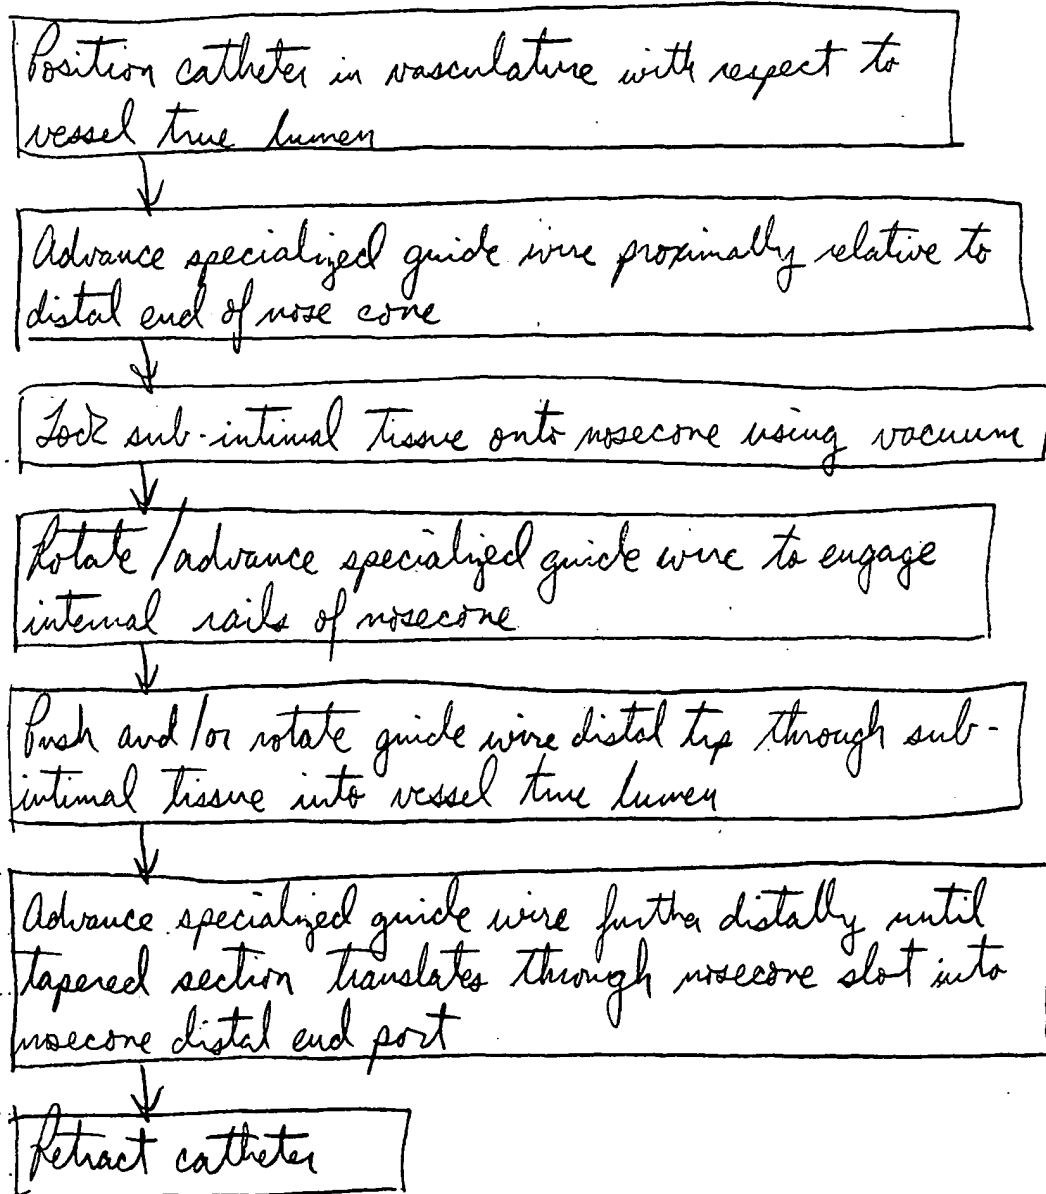 Position catheter in vasculature with respect to
vessel true lumen
Advance specialized guide wire proximally relative to
distal end of nose cone
Lock sub-intimal tissue onto nosecone using vacuum
Rotate/advance specialized guide wire to engage
internal rails of nosecone
Push and/or rotate guide wire distal tip through sub-
intimal tissue into vessel true lumen
Advance specialized guide wire further distally until
tapered section translates through nosecone slot into
nosecone distal end port
Retract catheter